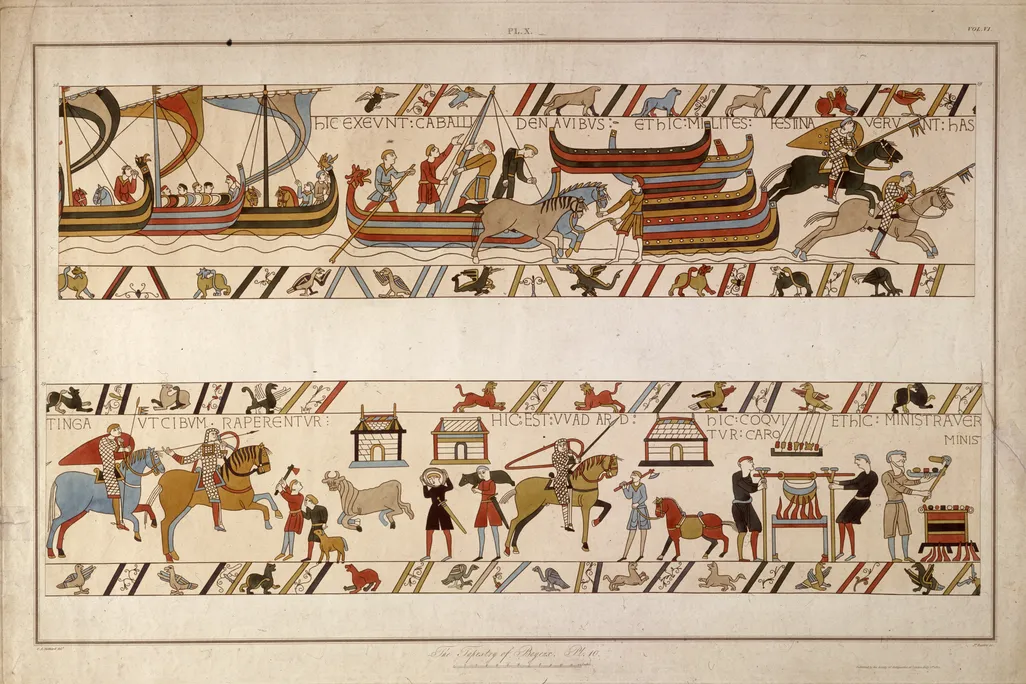 PL. X.
VOL. VI.
HIC EXEVNT: CABALLI DENAVIBVS:- ETHIC: MILITES: FESTINAVERVNT: HAS
TINGA VTCIBVM: RAPERENTVR: HIC: EST: VVADARD: HIC: COQVI ETHIC: MINISTRAVER
TVR: CARO MINIS
The Tapestry of Bayeux. Pl. 10.